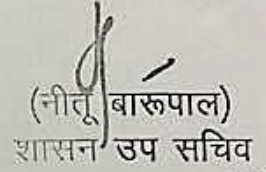 (नीतू बारूपाल)
शासन उप सचिव